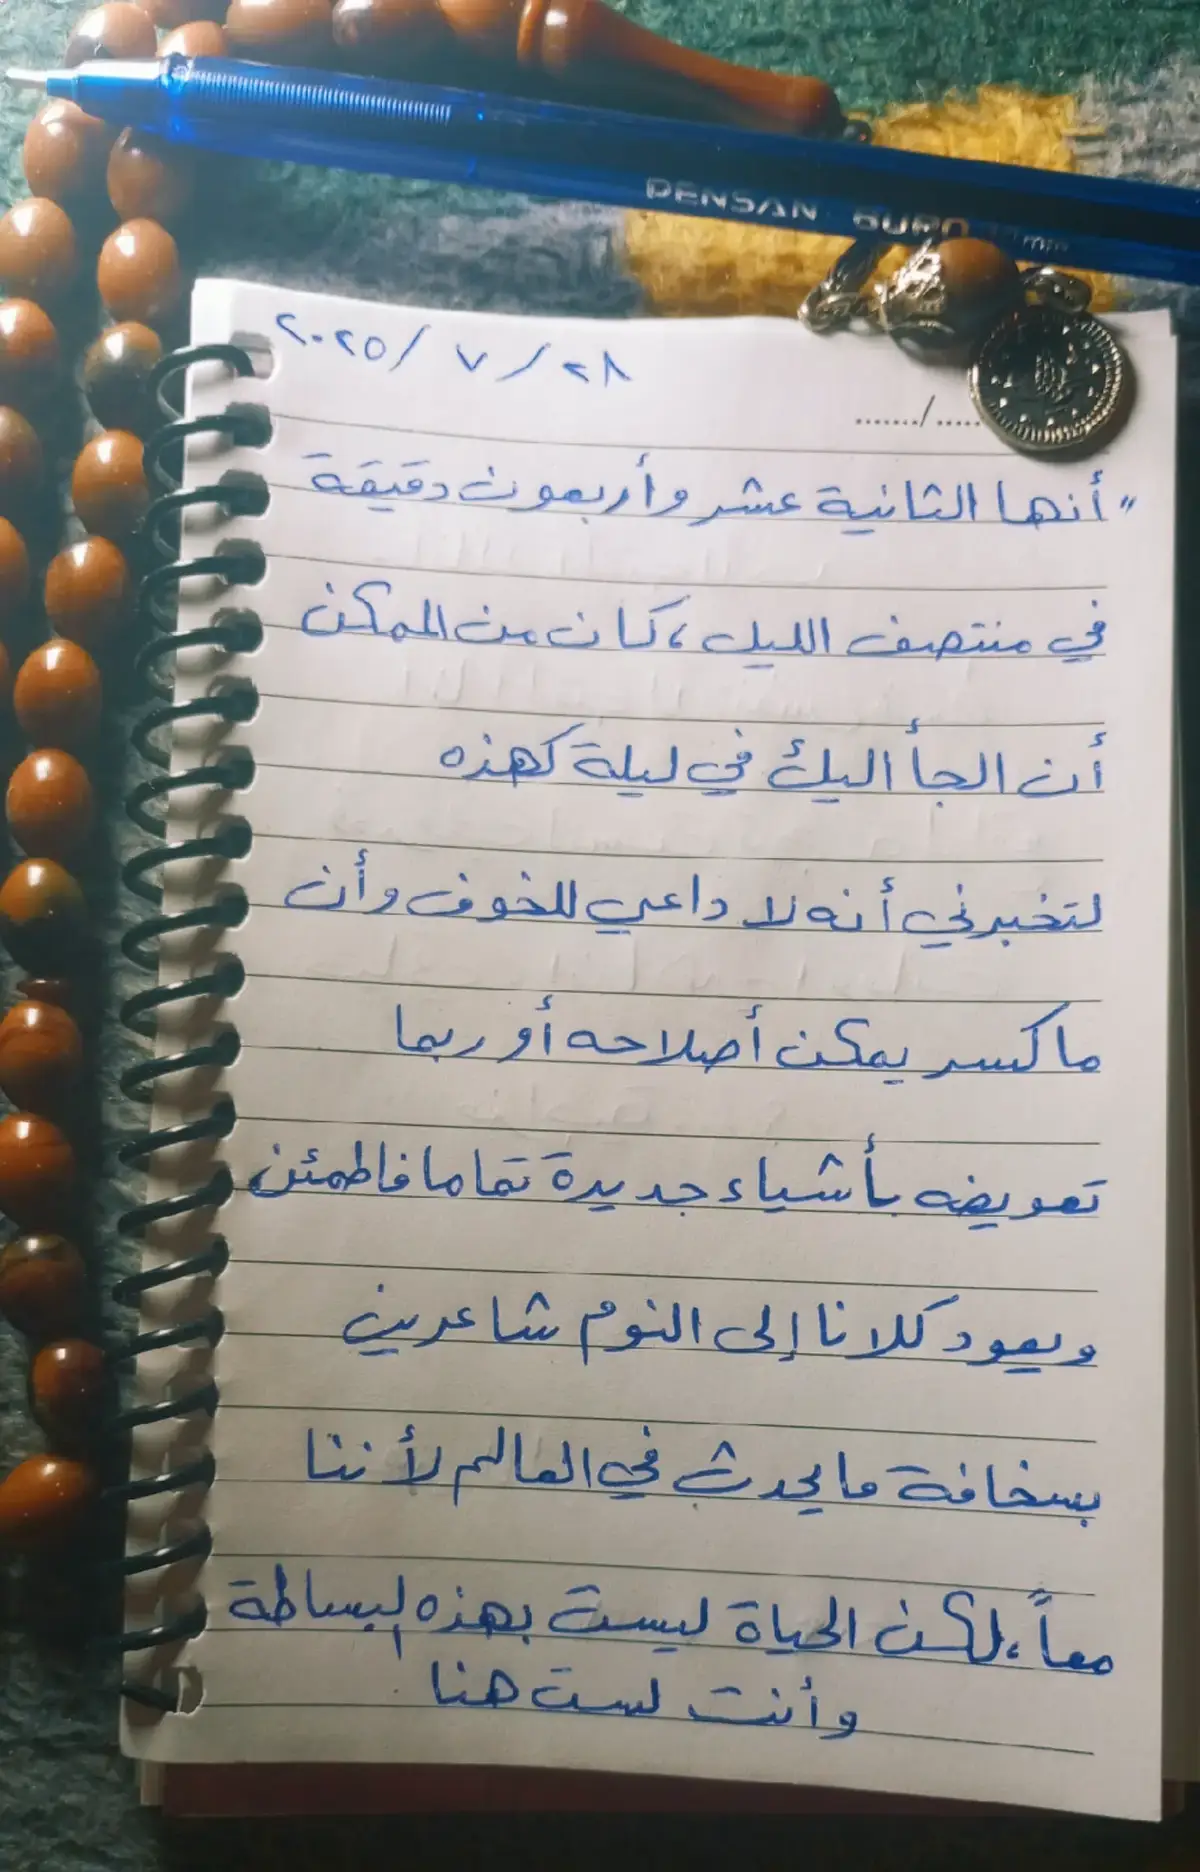 PENSAN BURO mm
٢٠٢٥/ ٧ /٢٨
......./.....
"أنها الثانية عشر وأربعون دقيقة
في منتصف الليل ، كان من الممكن
أن الجأ اليك في ليلة كهذه
لتخبرني أنه لا داعي للخوف وأن
ماكسر يمكن أصلاحه أو ربما
تعويضه بأشياء جديدة تماما فاطمئن
ويعود كلانا إلى النوم شاعرين
بسخافة مايحدث في العالم لأننا
معاً ، لكن الحياة ليست بهذه البساطة
وأنت لست هنا